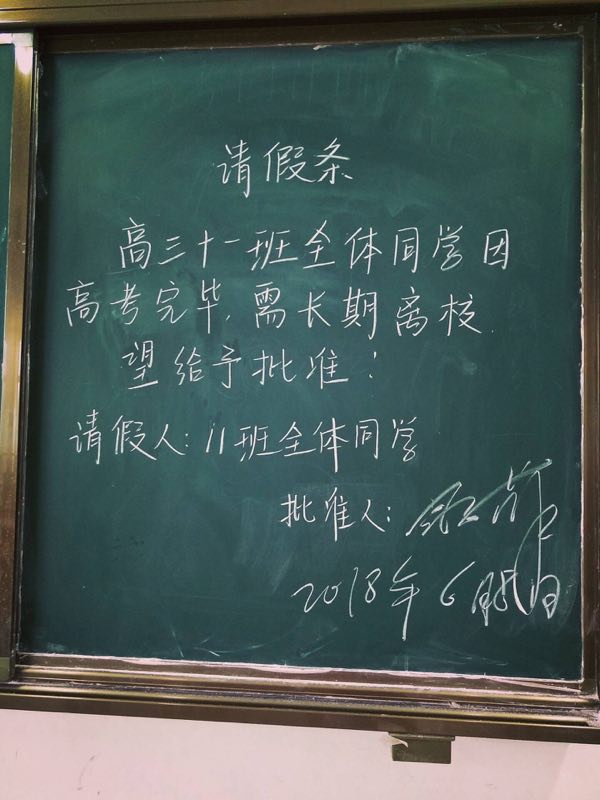 请假条
高三十一班全体同学因
高考完毕,需长期离校.
望给予批准!
请假人:11班全体同学
批准人:
2018年6月8日